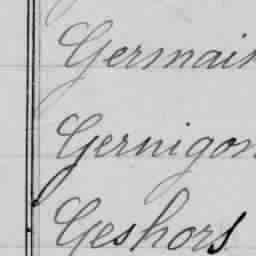 Germain
Gernigon
Geshors